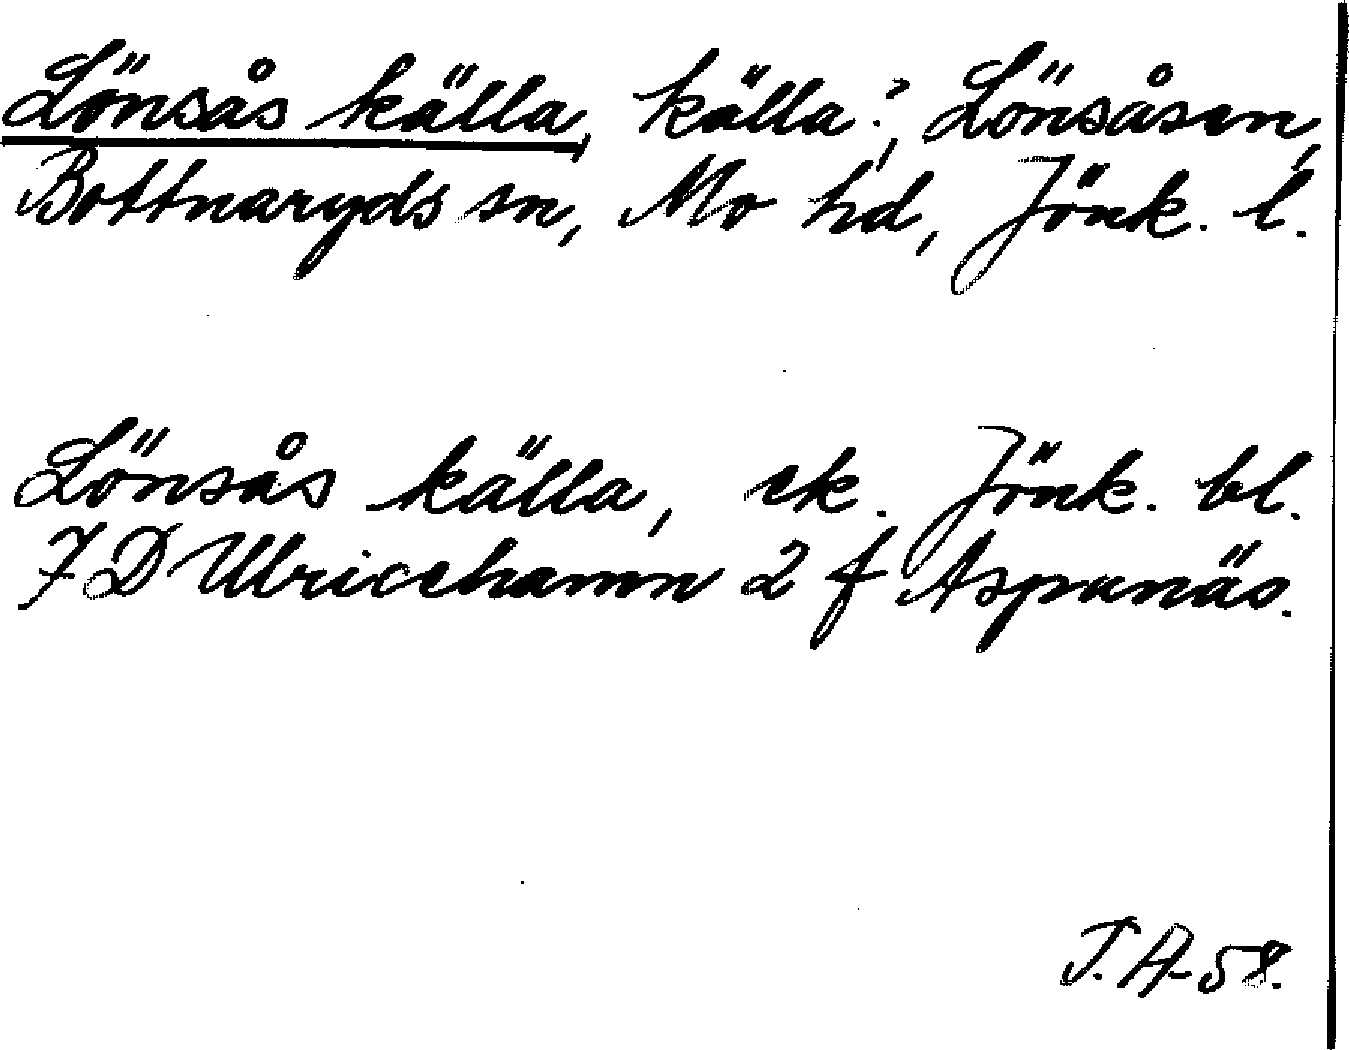 Lönsås källa, källa?, Lönsåsen,
Bottnaryds sn, Mo hd, Jönk. l.
Lönsås källa, ek. Jönk. bl.
7 D Ulricehamn 2 f Aspanäs.
T.A-58.